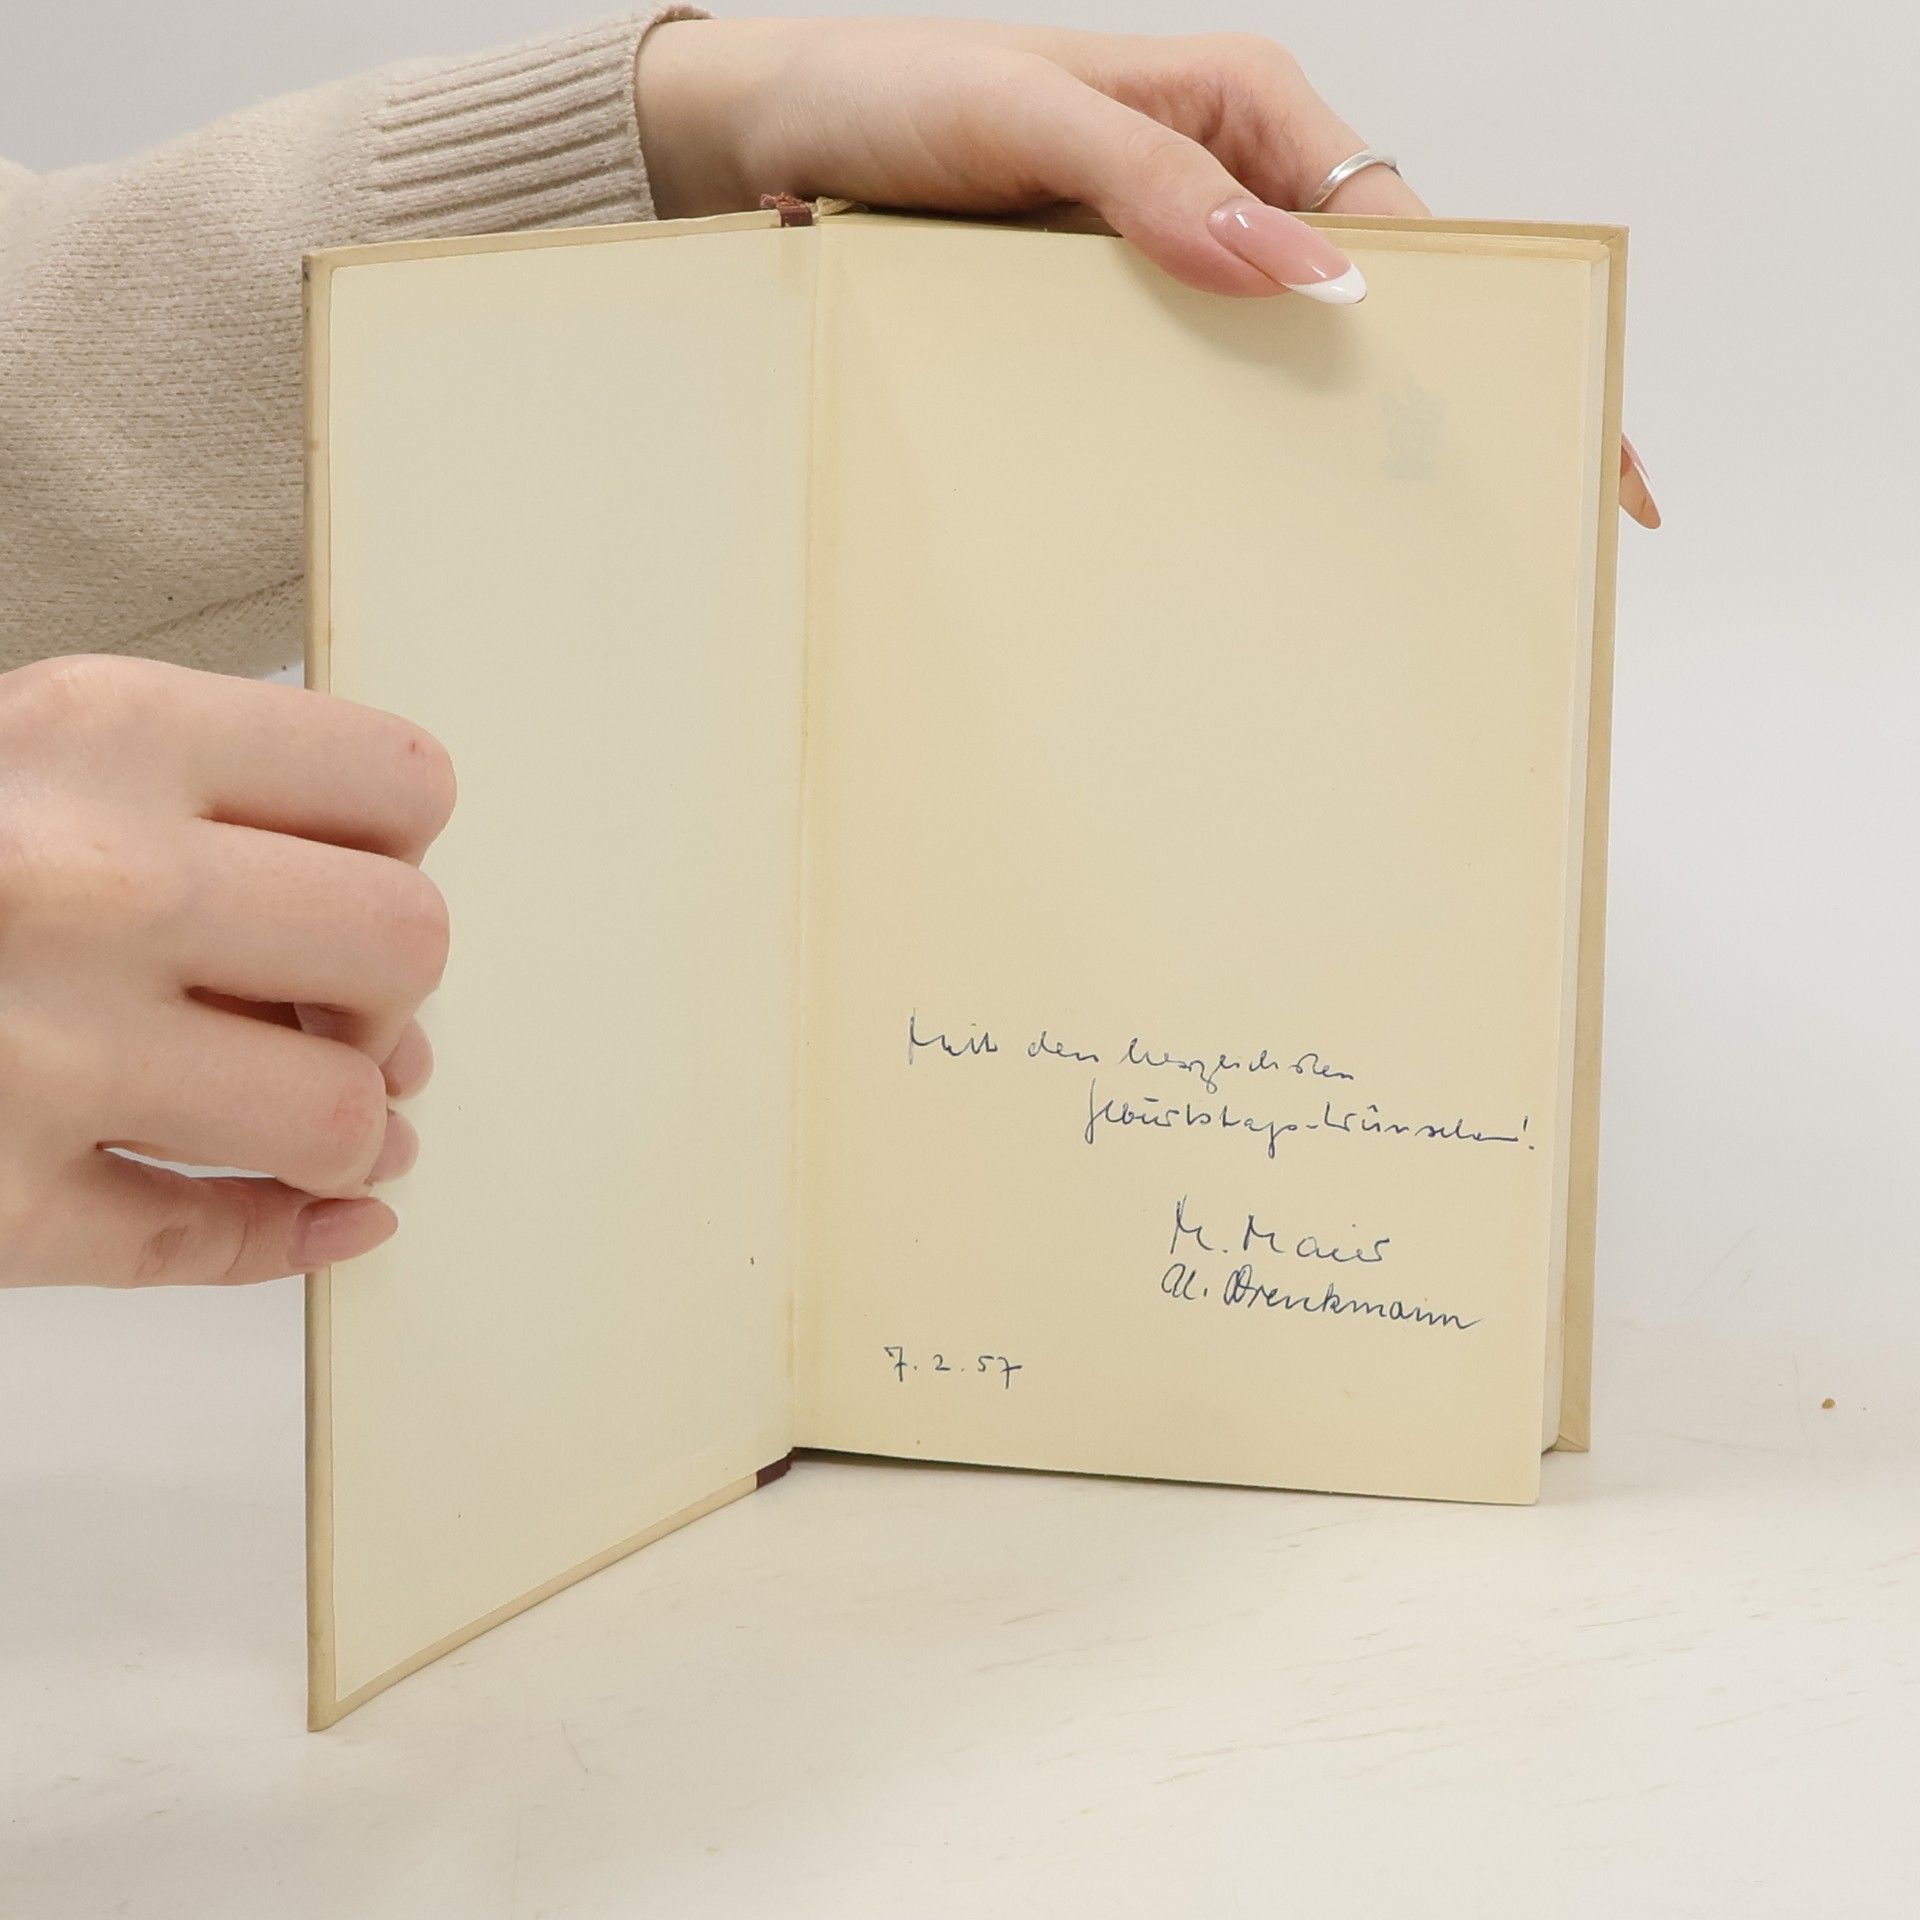 Mit den herzlichsten
Geburtstags-Wünschen!
M. Maier
U. Drenkmann
7.2.57